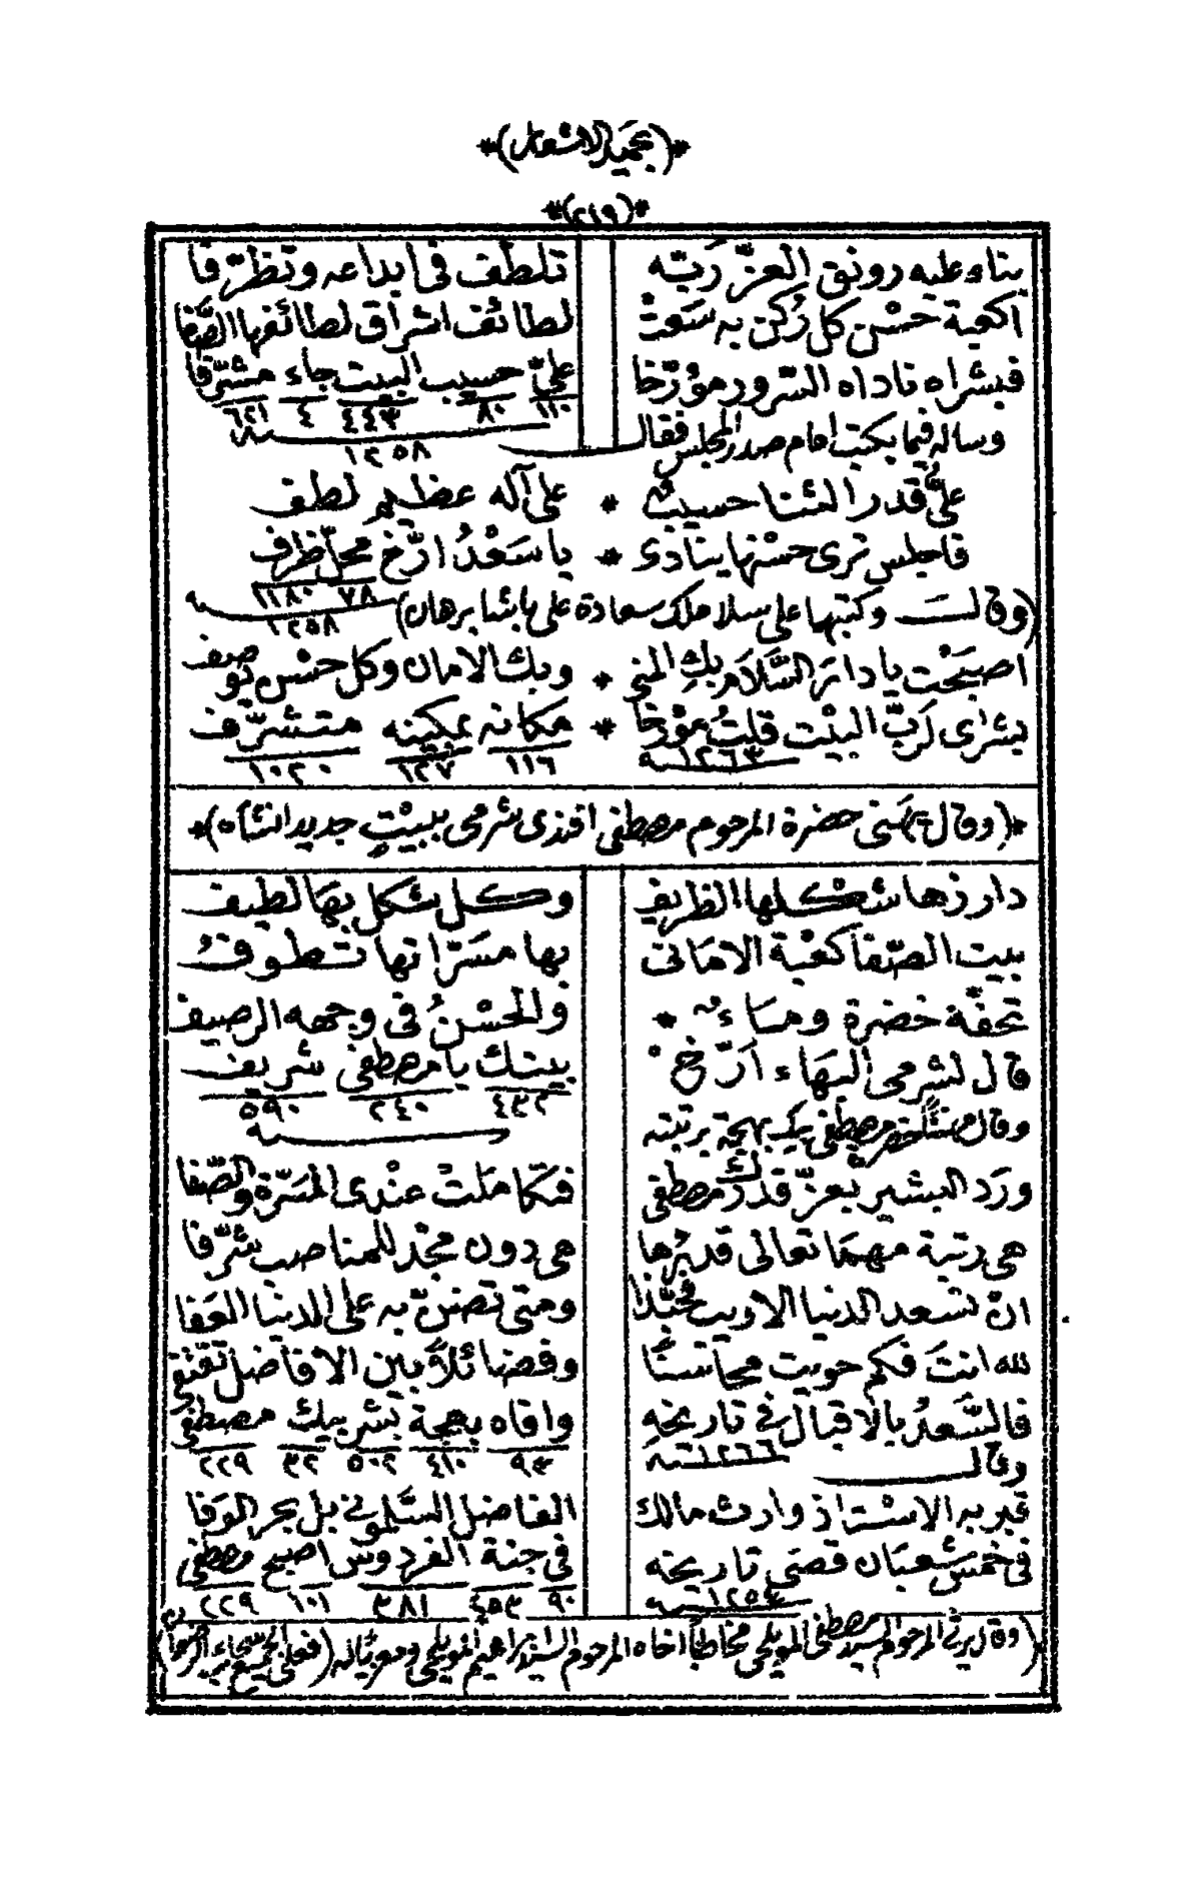 *(بحميد الاشعار)*
*(٢١٩)*
بناء عليه رونق العزّ رَبّه تلطّف فى ابداعه وتظرّفا
اكعبة حُسْن كل رُكن به سَعتْ لطائف اشراق لطائفها الصَّفا
فبشراه ناداه السّرور مؤرّخا علىّ حسيب البيت جاء مشرّفا
١١٠ ٨٠ ٤٤٣ ٤ ٦٢١
سنة ١٢٥٨
وساله فيما يكتب امام صدر المجلس فقال
علىُّ قدر الثنا حسيبٌ * على آله عظيم لطف
فاجلس ترى حسْنها ينادى * يا سَعْدُ ارّخ محلّ ظرف
٧٨ ١١٨٠
سنة ١٢٥٨
(وقال وكتبها على سلاملك سعادة على باشا برهان)
اصبَحْت يا دارَ السَّلامِ بكِ المنى * وبك الامان وكل حسْن توصف
بشراى لَربّ البيْت قلتُ مؤرّخا * مكانه بمكينه متشرّف
سنة ١٢٦٣ ١١٦ ١٢٧ ١٠٢٠
*(وقال يهَنى حضرة المرحوم مصطفى افندى شرمى ببيْتٍ جديد انشأه)*
دار زها شكلها الظريف وكل شكل بهَا لطيف
بيت الصّفا كعْبة الامانى بها مسَرّاتها تطوفُ
تحفّه خضرة ومَاءٌ * والحُسْنُ فى وجهه الرصيف
قال لشرمى البَهاء ارّخ بيتك يا مصطفى شريف
٤٣٢ ٢٤٠ ٥٩٠
سنة
وقال مهنئا حضرة مصطفى بيك بهجة برتبته
ورَد البشير بعزّ قدرك مصطفى فكّاملتْ عندى المسَرّة والصّفا
هى رتبة مهمَا تعالى قدرُها هى دون مجْد للمناصب شرّفا
انْ تسعد الدنيا الاديب فحبّذا ومتى تضنّ به على الدنيا العَفا
لله انتَ فكم حويت محاسناً وفضائلاً بين الافاضل تقتفى
فالسَّعدُ بالاقبال فى تاريخهِ وافاه بهجة بشر بيك مصطفى
سنة ١٢٦٦ ٩٣ ٤١٠ ٥٠٢ ٣٢ ٢٢٩
وقال
قبر به الاستاذ وارث مالك الفاضل السَّلمونى بل بحر الوَفا
فى خمس شعبَان قضى تاريخه فى جنة الفردوس اصبح مصطفى
سنة ١٢٥٤ ٩٠ ٤٥٣ ٣٨١ ١٠١ ٢٢٩
(وقال يرثى المرحوم السيد مصطفى المويلحى مخاطباً اخاه المرحوم السيد ابراهيم المويلحى ومعزيا له